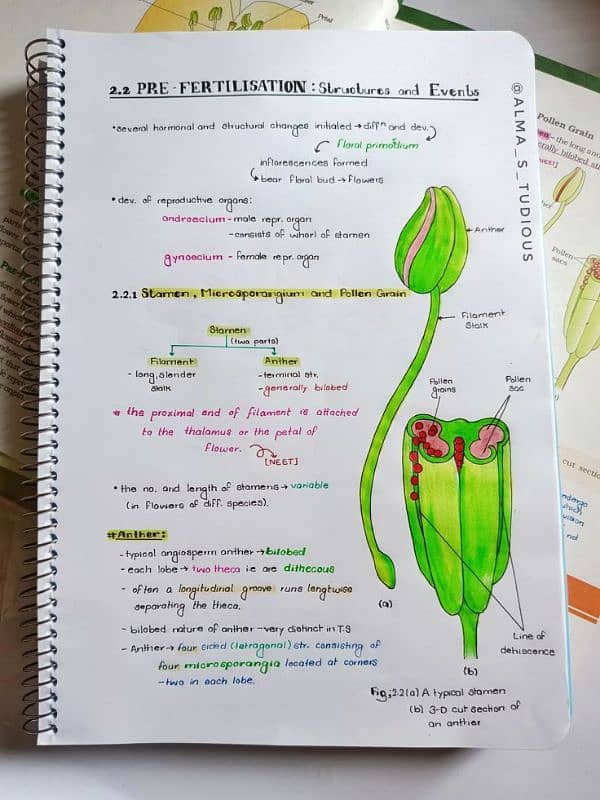 2.2 PRE-FERTILISATION: Structures and Events
@ALMA_S_TUDIOUS
•several hormonal and structural changes initiated → diffⁿ and dev.
Floral primodium
inflorescences formed
bear floral bud → flowers
• dev. of reproductive organs:
androecium - male repr. organ
-consists of whorl of stamen
gynoecium - female repr. organ
Anther
2.2.1 Stamen, Microsporangium and Pollen Grain
Filament
Stalk
Stamen
(two parts)
Filament
- long, slender
stalk
Anther
-terminal str.
-generally bilobed
* the proximal end of filament is attached
to the thalamus or the petal of
flower.
[NEET]
Pollen
grains
Pollen
sac
• the no. and length of stamens → variable
(in flowers of diff. species).
#Anther:
-typical angiosperm anther → bilobed
-each lobe → two theca ie are dithecous
- often a longitudinal groove runs lengtwise
separating the theca.
- bilobed nature of anther - very distinct in T.S
- Anther → four sided (tetragonal) str. consisting of
four microsporangia located at corners
-two in each lobe.
(a)
Line of
dehiscence
(b)
Fig: 2.2 (a) A typical stamen
(b) 3-D cut section of
an anther
Petal
Pollen Grain
- the long and
[NEET]
Pollen
sacs
cut section